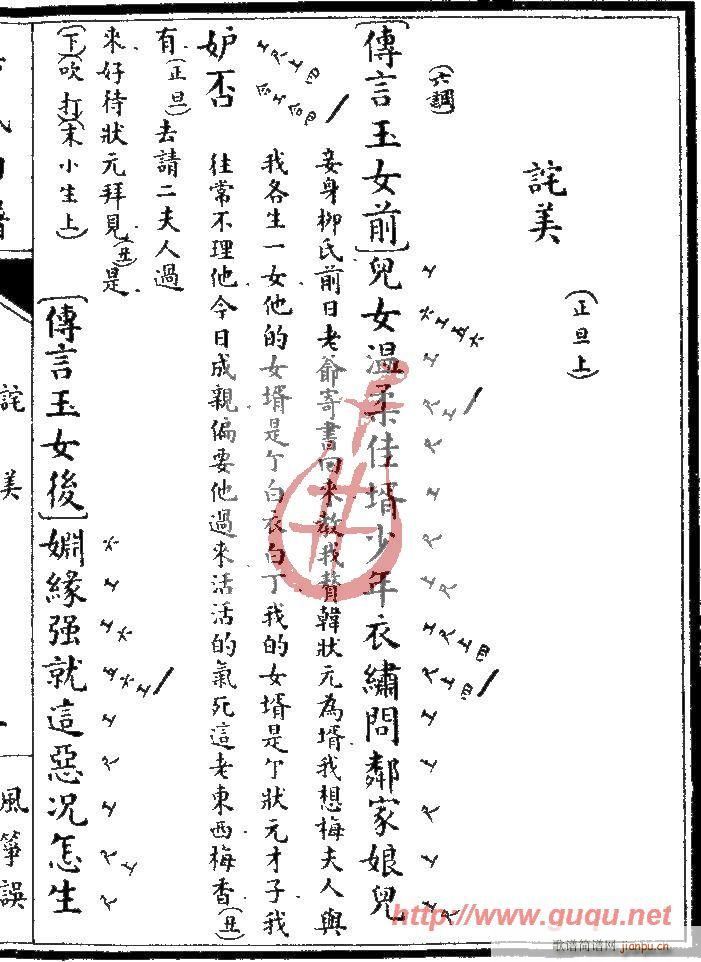 詫美
(正旦上)
(六調)
[傳言玉女前]兒女温柔佳壻少年衣繡問鄰家娘兒
妾身柳氏前日老爺寄書回來教我贅韓狀元為壻我想梅夫人與
我各生一女他的女壻是个白衣白丁我的女壻是个狀元才子我
妒否
往常不理他今日成親偏要他過來活活的氣死這老東西梅香(丑)
有(正旦)去請二夫人過
來好待狀元拜見(丑)是
(下)(吹打)(末小生上)
[傳言玉女後]姻緣强就這惡况怎生
詫美
風箏誤
http://www.guqu.net
歌谱简谱网
jianpu.cn